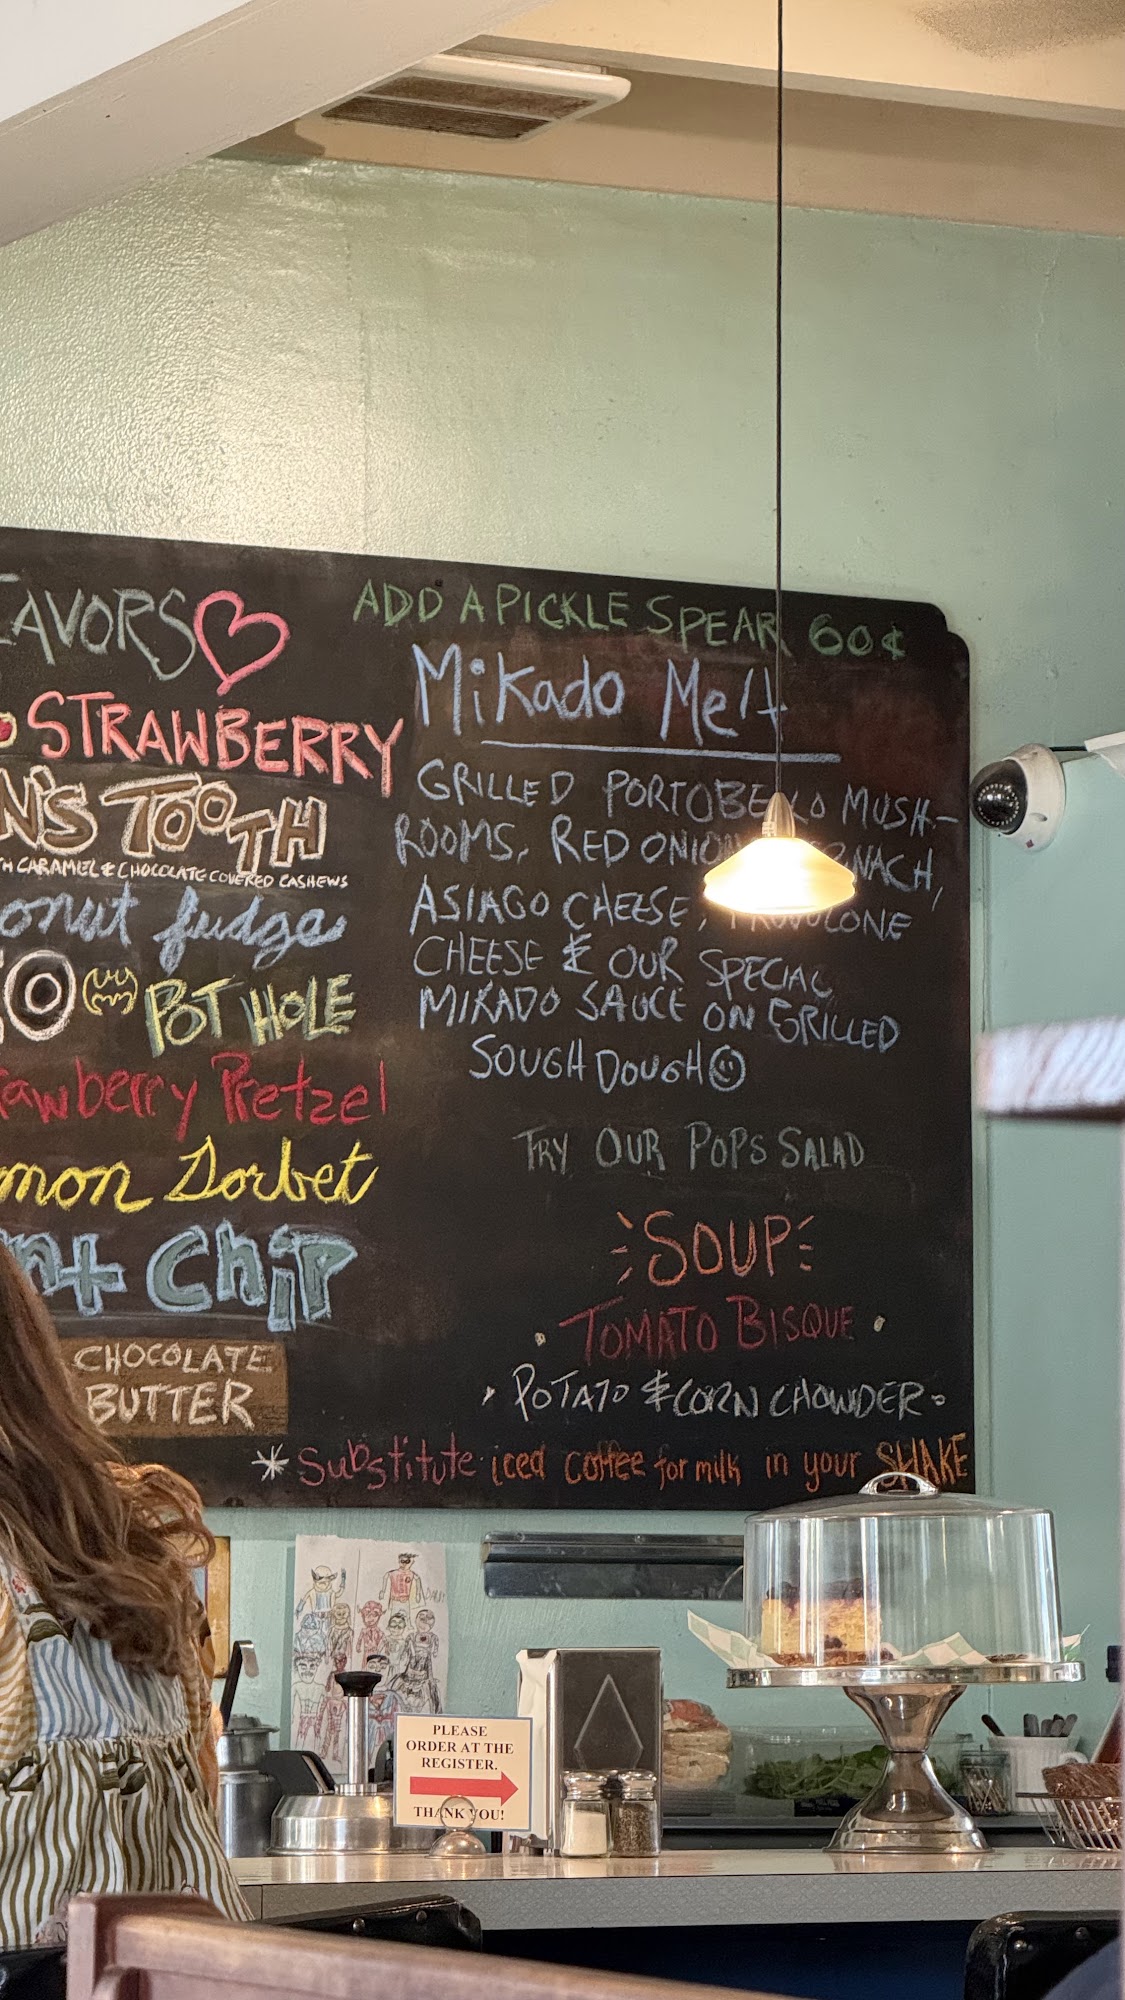 ADD A PICKLE SPEAR 60¢
STRAWBERRY
TOOTH
CARAMEL & CHOCOLATE COVERED CASHEWS
fudge
POT HOLE
Pretzel
Sorbet
Chip
CHOCOLATE
BUTTER
Mikado Melt
GRILLED PORTOBELLO MUSH-
ROOMS, RED ONION
ASIAGO CHEESE, PROVOLONE
CHEESE & OUR SPECIAL
MIKADO SAUCE ON GRILLED
SOUGH DOUGH
TRY OUR POPS SALAD
SOUP
TOMATO BISQUE
POTATO & CORN CHOWDER
* Substitute iced coffee for milk in your SHAKE
PLEASE
ORDER AT THE
REGISTER.
THANK YOU!